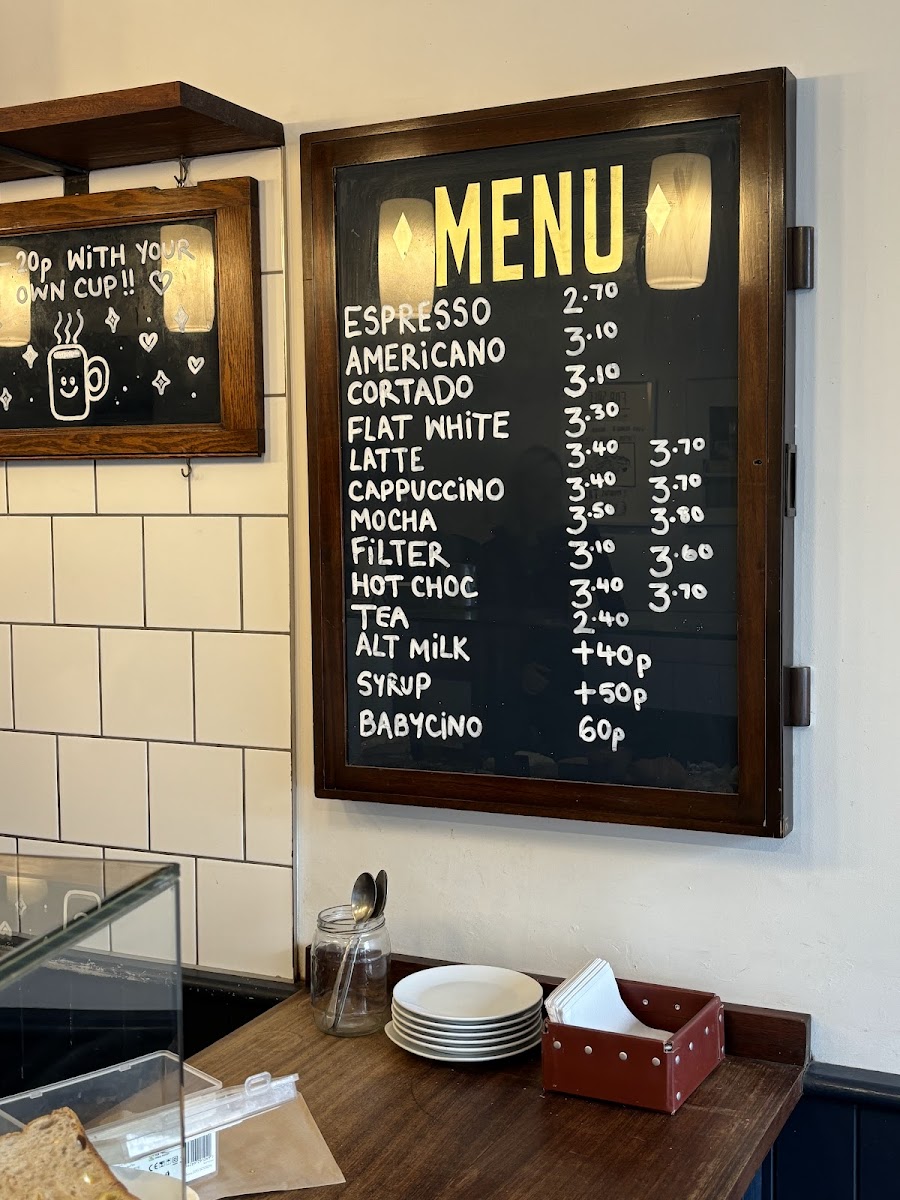 -20p WiTH YOUR
OWN CUP!!
MENU
ESPRESSO 2.70
AMERiCANO 3.10
CORTADO 3.10
FLAT WHiTE 3.30
LATTE 3.40 3.70
CAPPUCCiNO 3.40 3.70
MOCHA 3.50 3.80
FiLTER 3.10 3.60
HOT CHOC 3.40 3.70
TEA 2.40
ALT MiLK +40p
SYRUP +50p
BABYCiNO 60p